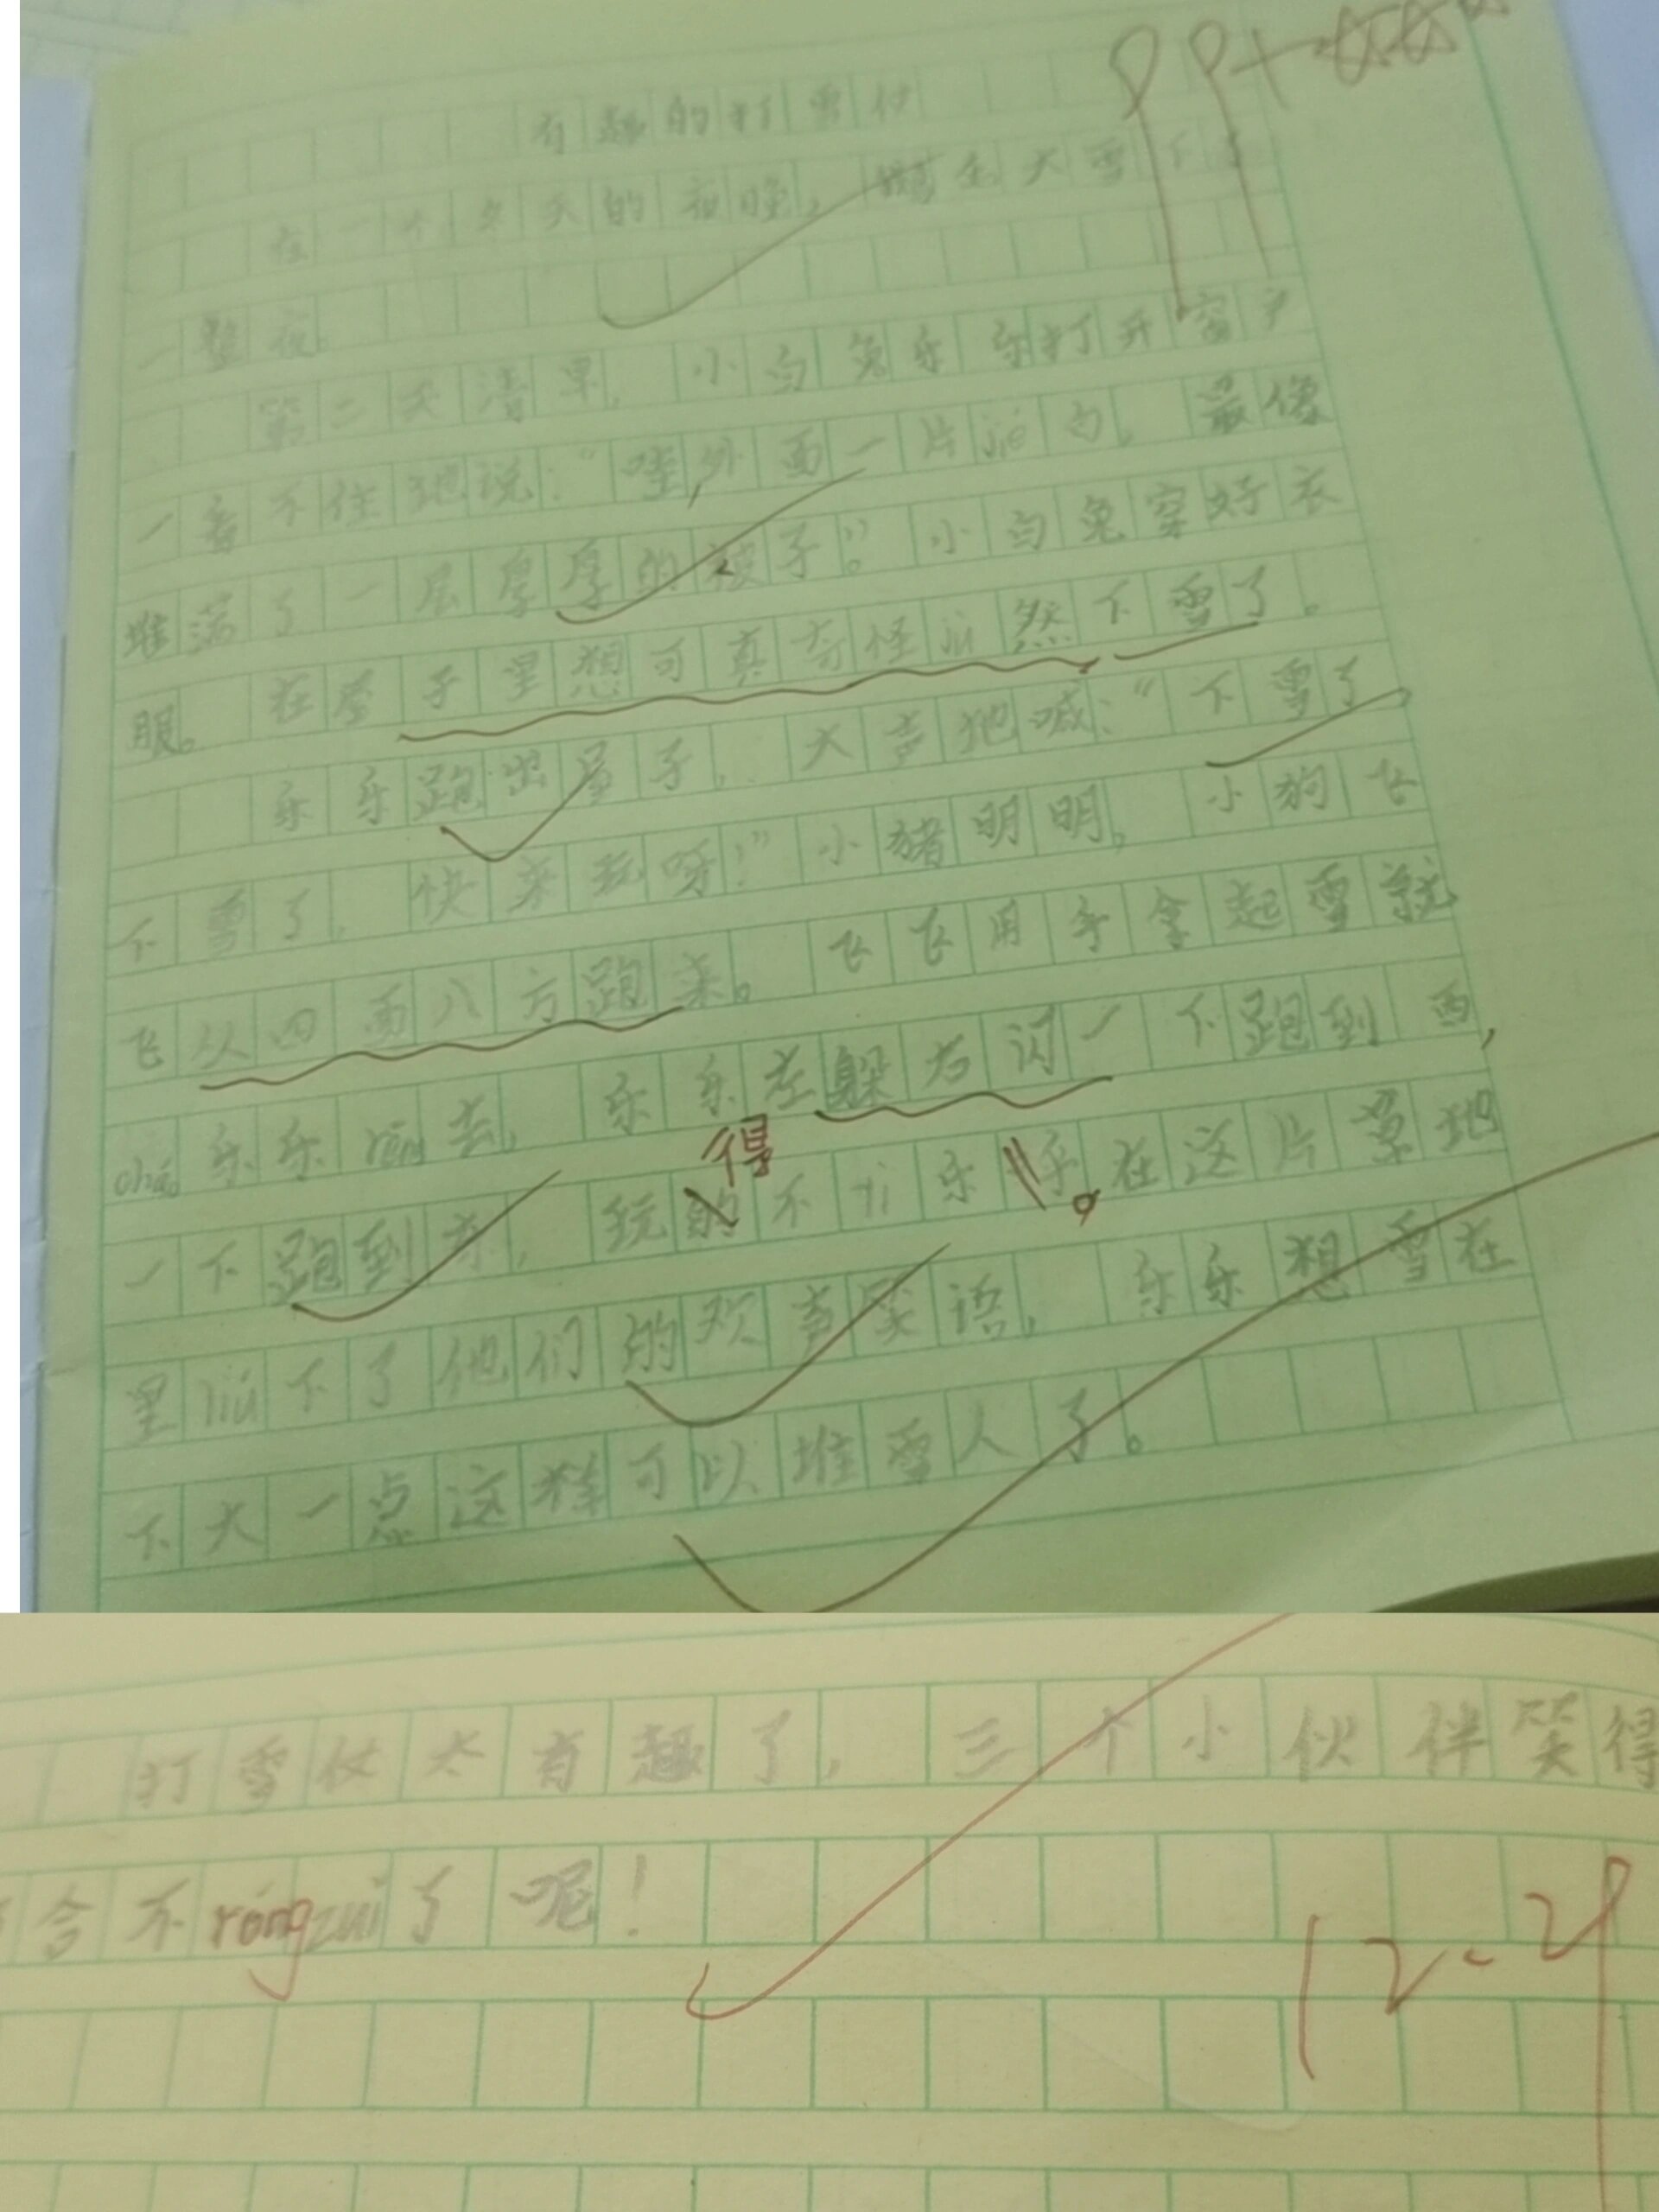 有趣的打雪仗
在一个冬天的夜晚，大雪下了
一整夜。
第二天清早，小白兔乐乐打开窗户
一看不住地说：“哇，外面一片jié白，最像
堆满了一层厚厚的被子”。小白兔穿好衣
服。在屋子里想可真奇怪jū然下雪了。
乐乐跑出屋子，大声地喊：“下雪了，
下雪了，快来玩呀！”小猪明明，小狗飞
飞从四面八方跑来。飞飞用手拿起雪就
cháo乐乐rēng去，乐乐左躲右闪一下跑到西，
得
一下跑到东，玩的不yì乐乎。在这片草地
里liú下了他们的欢声笑语，乐乐想雪在
下大一点这样可以堆雪人了。
打雪仗太有趣了，三个小伙伴笑得
合不róngzuǐ了呢！
12.29